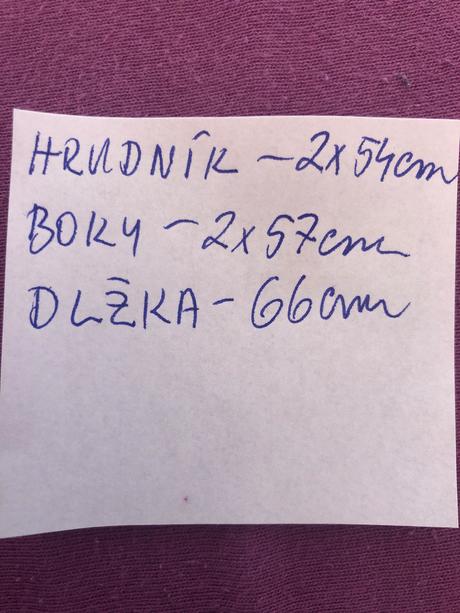 HRUDNÍK - 2x54cm
BOKY - 2x57cm
DLŽKA - 66cm